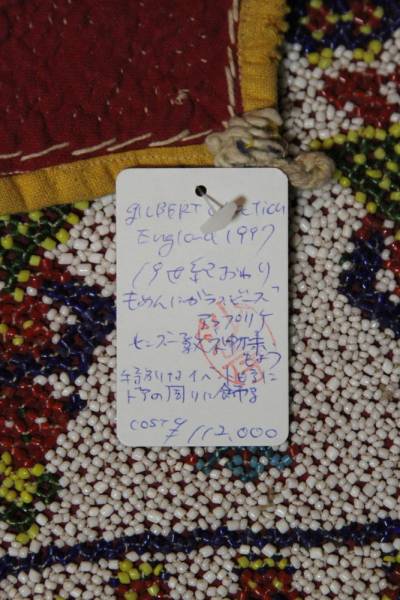 GILBERT COLLECTION
England 1997
19世紀おわり
もめんにガラスビーズ
アップリケ
ヒンズー教
特別なイベント
ドアの周りに飾る
COST ¥112,000